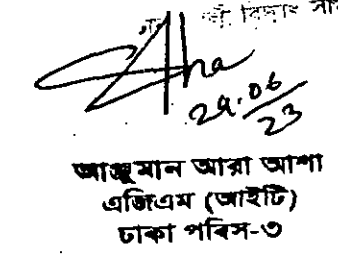 29.06
23
আঞ্জুমান আরা আশা
এজিএম (আইটি)
ঢাকা পবিস-৩